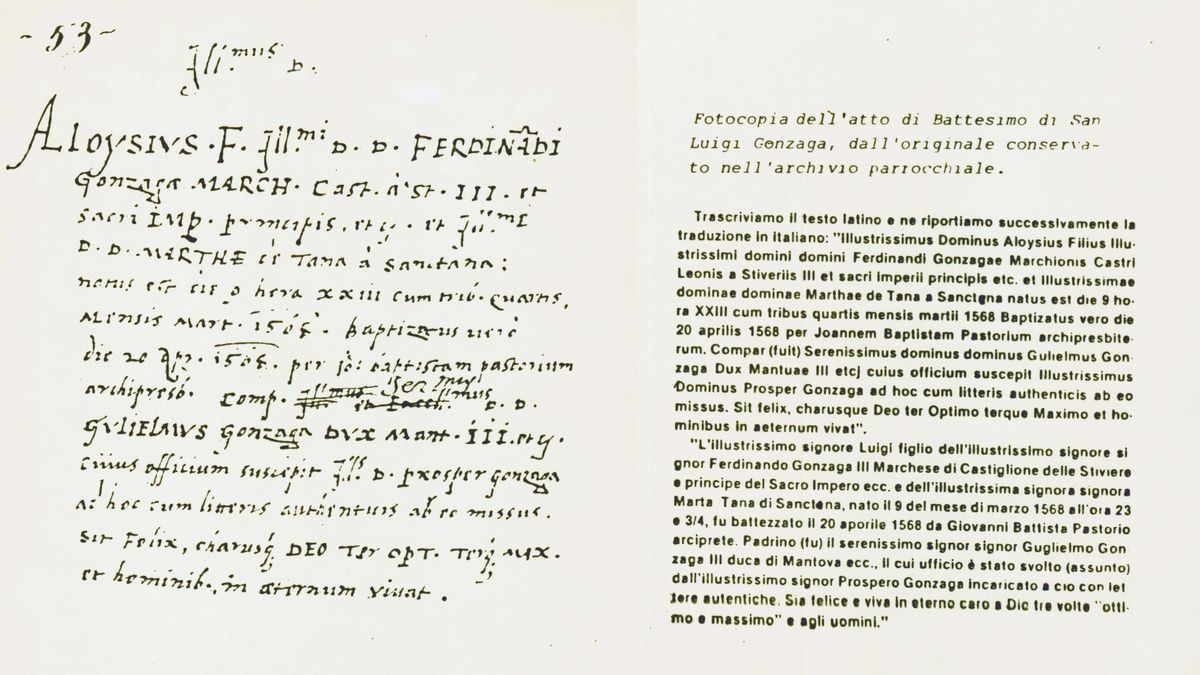 - 53 -
Ill.mus D.
ALOYSIVS · F. Ill.mi D. D. FERDINĀDI
Gonzagæ MARCH · Cast. à st. III. et
sacri IMP. principis, etc. et Ill.mæ
D. D. MARTHE de Tana à Sanctana:
natus est die 9 hora xxiii cum trib. quartis,
MENSIS MART. 1568. baptizatus uero
die 20 Apr. 1568. per Jo: baptistam pastorium
archipresb. Comp. Ser.mus D. D.
GVLIELMVS Gonzaga DVX Mant. III. etc.
cuius officium suscepit Ill. D. Prosper gonzaga
ad hoc cum litteris authenticis ab eo missus.
Sit Felix, charusq DEO Ter OPT. Terq MAX.
et hominib., in æternum vivat.
Fotocopia dell'atto di Battesimo di San
Luigi Gonzaga, dall'originale conserva-
to nell'archivio parrocchiale.
Trascriviamo il testo latino e ne riportiamo successivamente la
traduzione in italiano: "Illustrissimus Dominus Aloysius Filius Illu-
strissimi domini domini Ferdinandi Gonzagae Marchionis Castri
Leonis a Stiveriis III et sacri imperii principis etc. et Illustrissimae
dominae dominae Marthae de Tana a Sanctena natus est die 9 ho-
ra XXIII cum tribus quartis mensis martii 1568 Baptizatus vero die
20 aprilis 1568 per Joannem Baptistam Pastorium archipresbite-
rum. Compar (fuit) Serenissimus dominus dominus Gulielmus Gon
zaga Dux Mantuae III etcj cuius officium suscepit Illustrissimus
Dominus Prosper Gonzaga ad hoc cum litteris authenticis ab eo
missus. Sit felix, charusque Deo ter Optimo terque Maximo et ho-
minibus in aeternum vivat".
"L'illustrissimo signore Luigi figlio dell'illustrissimo signore si
gnor Ferdinando Gonzaga III Marchese di Castiglione delle Stiviere
e principe del Sacro Impero ecc. e dell'illustrissima signora signora
Marta Tana di Sanctena, nato il 9 del mese di marzo 1568 all'ora 23
e 3/4, fu battezzato il 20 aporile 1568 da Giovanni Battista Pastorio
arciprete. Padrino (fu) il serenissimo signor signor Guglielmo Gon
zaga III duca di Mantova ecc., il cui ufficio è stato svolto (assunto)
dall'illustrissimo signor Prospero Gonzaga incaricato a cio con let
tere autentiche. Sia felice e viva in eterno caro a Dio tre volte "otti-
mo e massimo" e agli uomini."